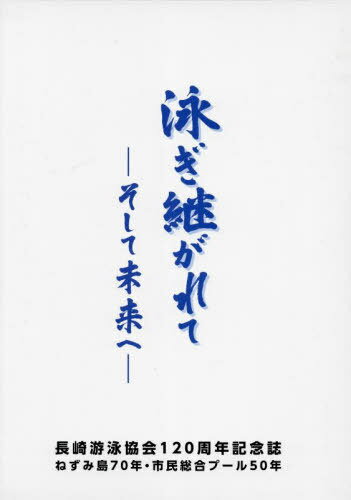 泳ぎ継がれて
―そして未来へ―
長崎游泳協会120周年記念誌
ねずみ島70年・市民総合プール50年